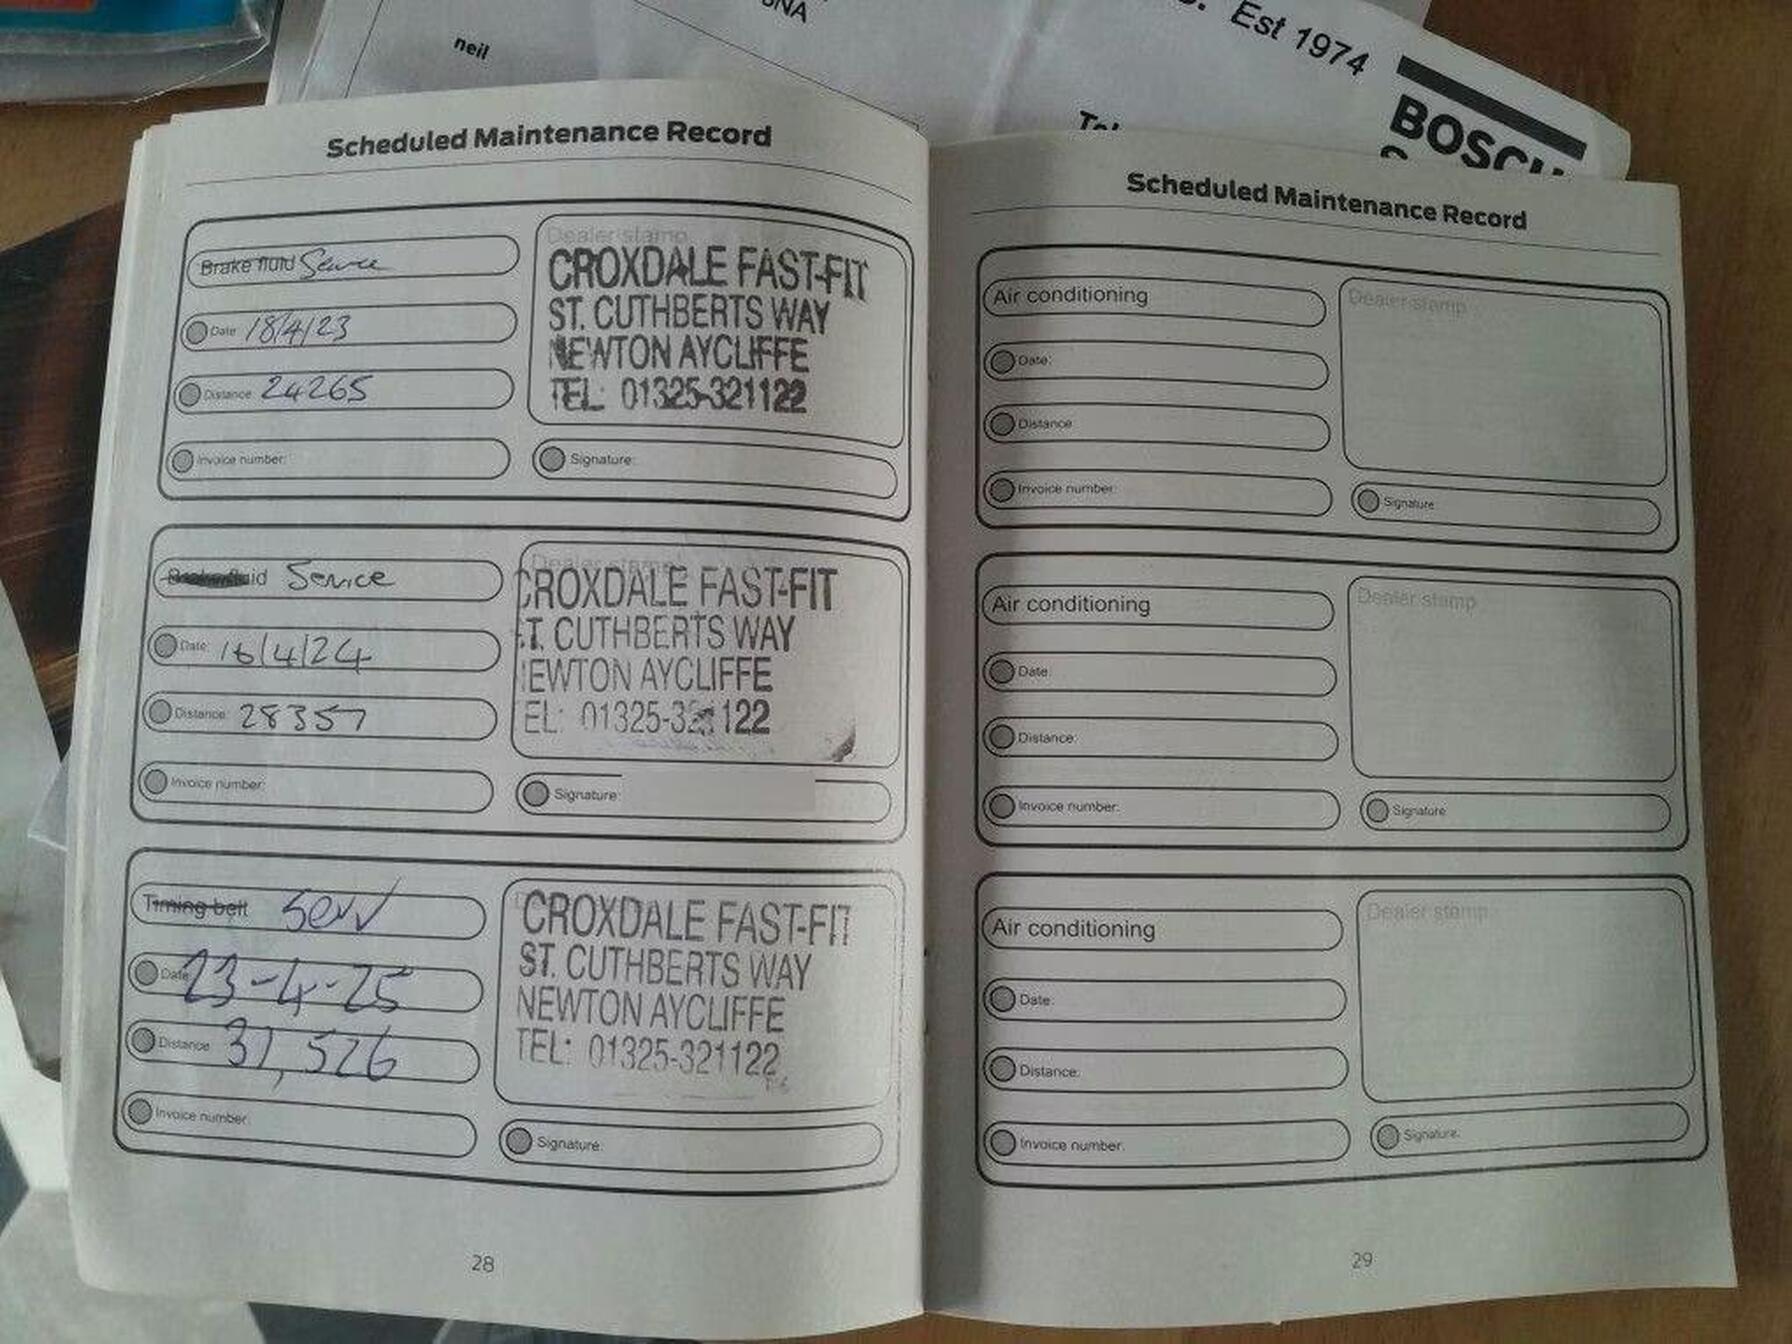 neil
Est 1974
BOSCH
Scheduled Maintenance Record
Brake fluid Service
Date: 18/4/23
Distance: 24265
Invoice number:
Dealer stamp
CROXDALE FAST-FIT
ST. CUTHBERTS WAY
NEWTON AYCLIFFE
TEL: 01325-321122
Signature:
Brake fluid Service
Date: 16/4/24
Distance: 28357
Invoice number:
Dealer stamp
CROXDALE FAST-FIT
T. CUTHBERTS WAY
EWTON AYCLIFFE
EL: 01325-321122
Signature:
Timing belt Serv
Date: 23-4-25
Distance: 31,526
Invoice number:
CROXDALE FAST-FIT
ST. CUTHBERTS WAY
NEWTON AYCLIFFE
TEL: 01325-321122
Signature:
28
Scheduled Maintenance Record
Air conditioning
Date:
Distance
Invoice number:
Dealer stamp
Signature
Air conditioning
Date:
Distance:
Invoice number:
Dealer stamp
Signature
Air conditioning
Date:
Distance:
Invoice number:
Dealer stamp
Signature:
29